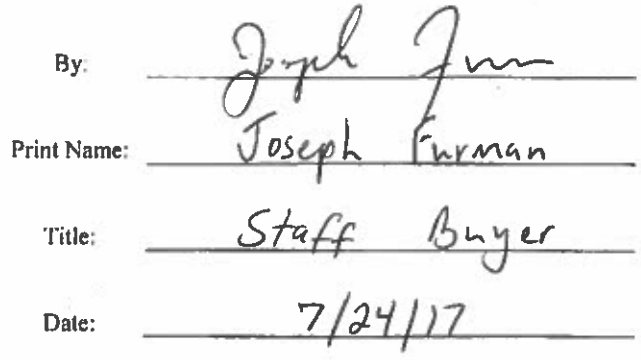 By: Joseph Furman
Print Name: Joseph Furman
Title: Staff Buyer
Date: 7/24/17